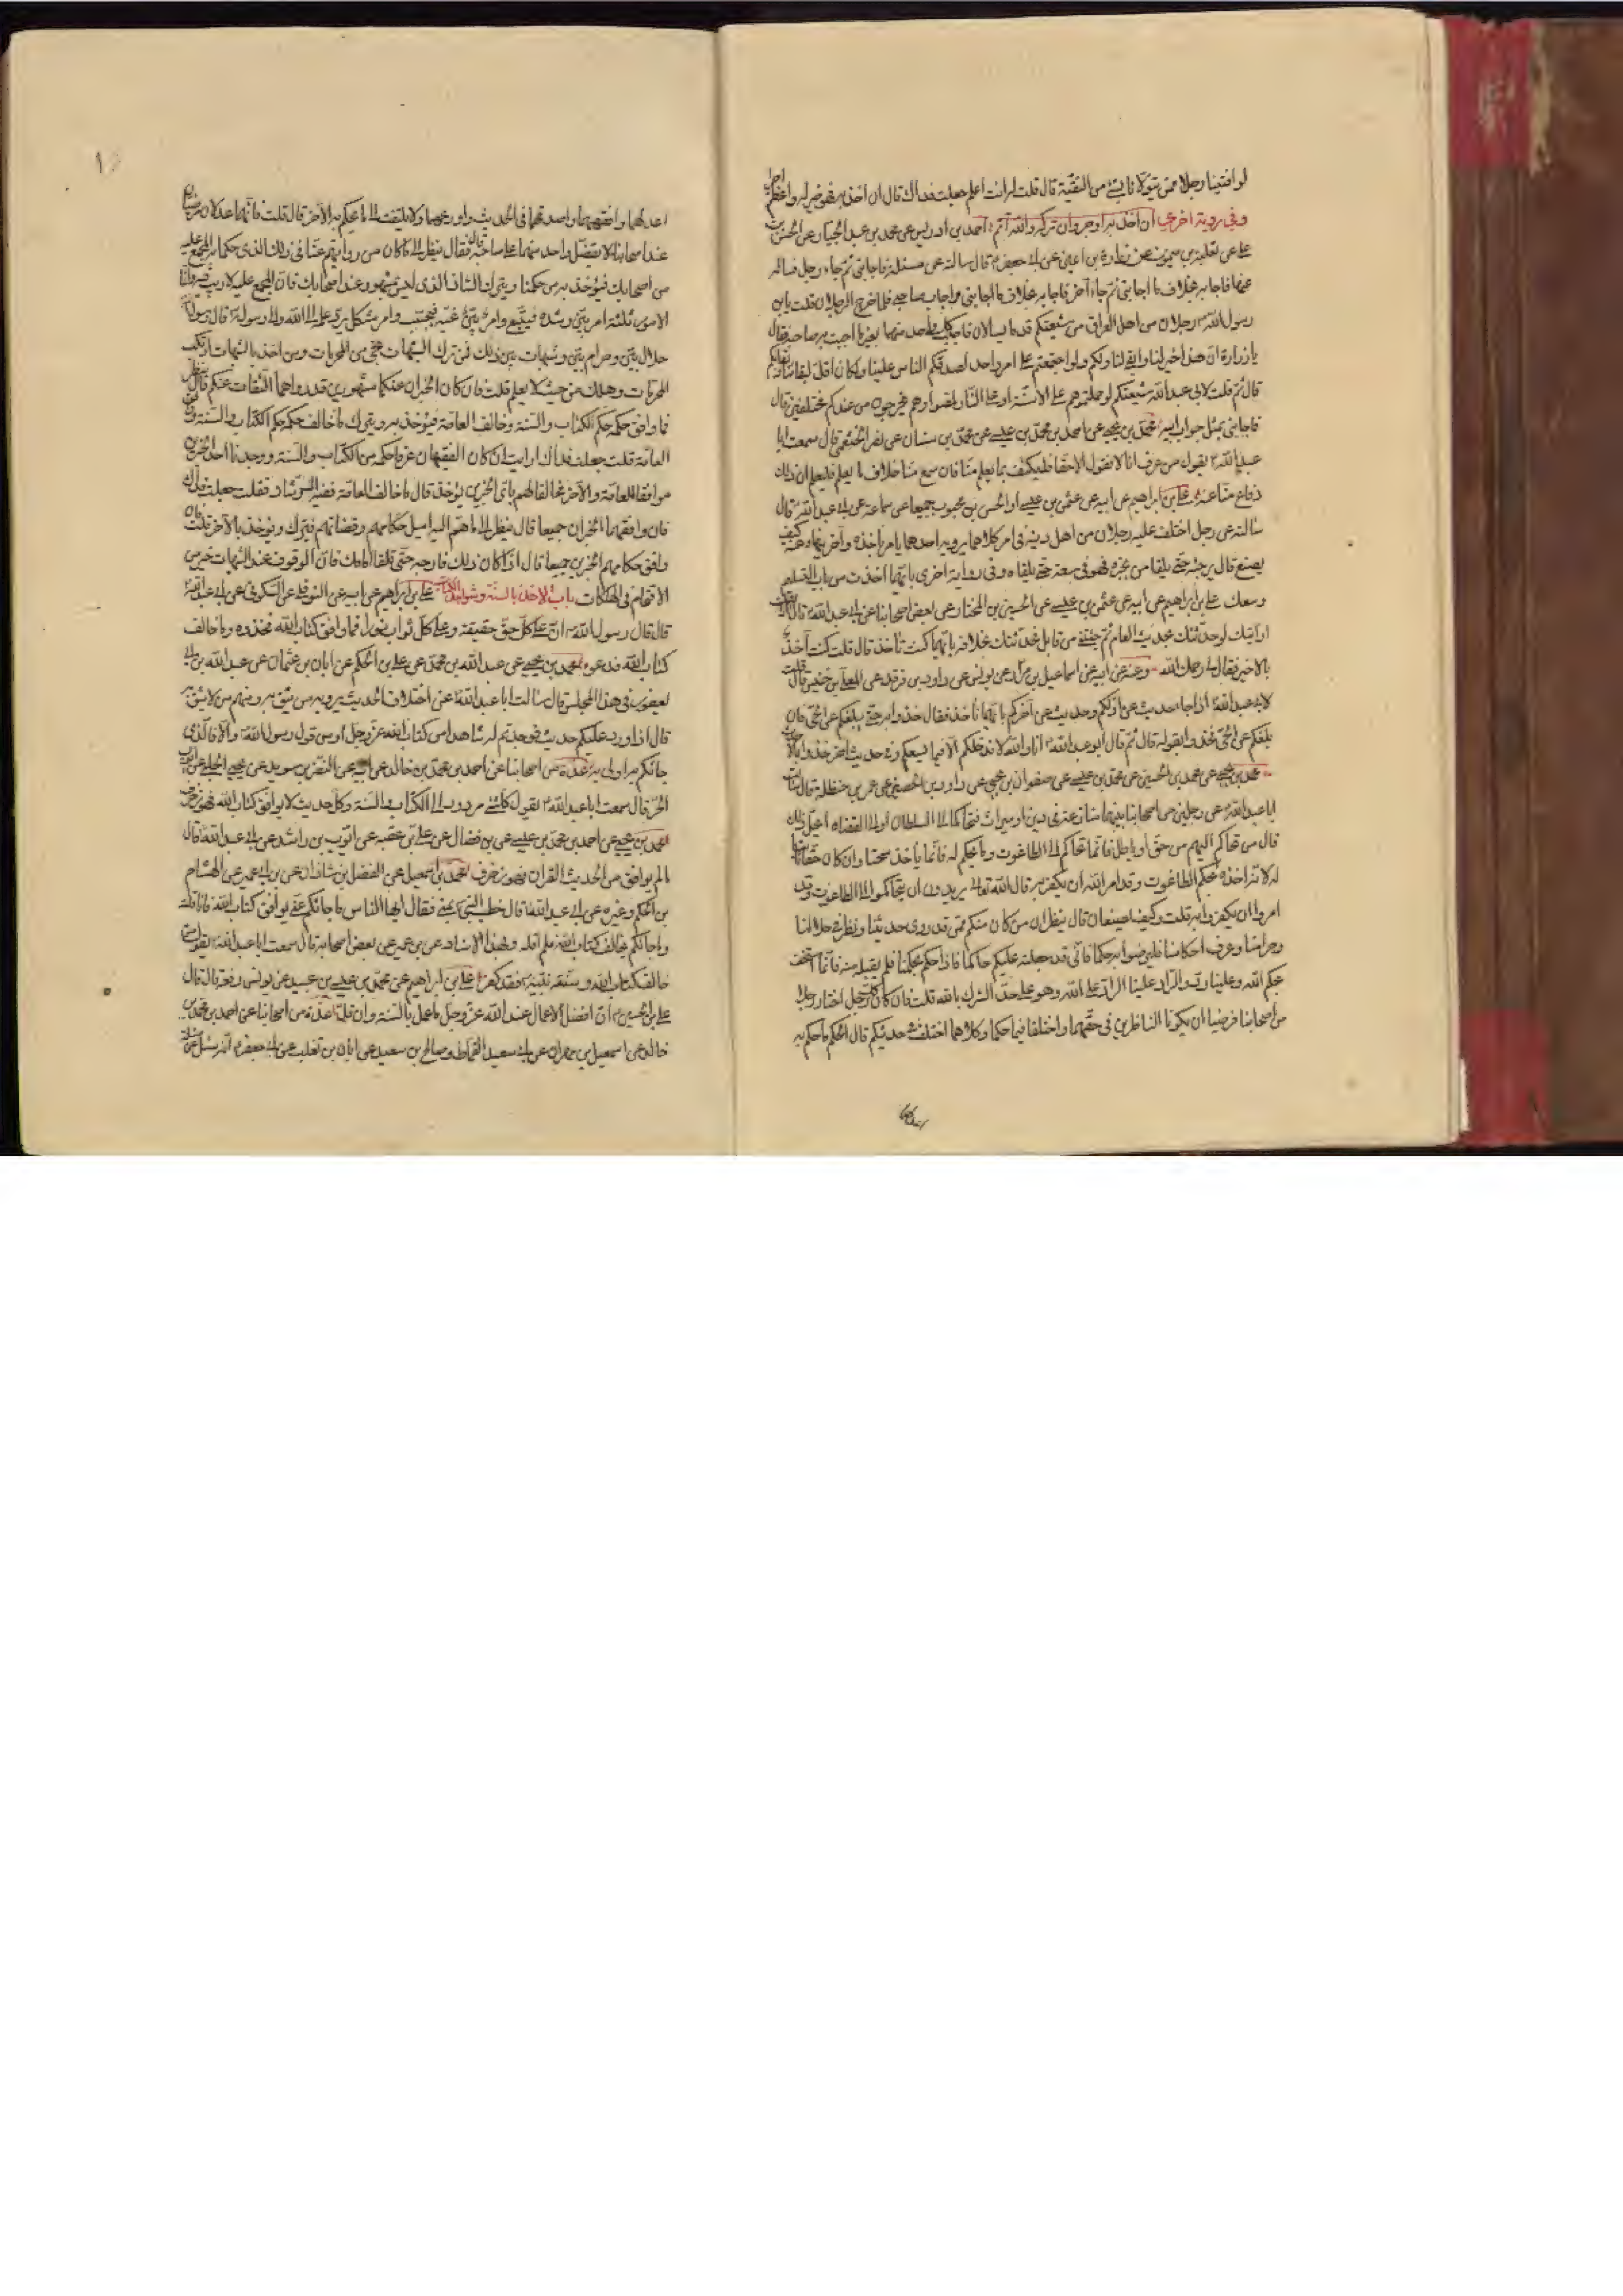 لو افتينا رجلا ممن يتولانا بشئ من التقية قال قلت له انت اعلم جعلت فداك قال ان اخذ به فهو خير له واعظم اجرا
وفي رواية اخرى ان اخذ به اوجر وان تركه والله اثم احمد بن ادريس عن محمد بن عبد الجبار عن الحسن بن
علي عن ثعلبة بن ميمون عن زرارة بن اعين عن ابي جعفر قال سالته عن مسئلة فاجابني ثم جاءه رجل فساله
عنها فاجابه بخلاف ما اجابني ثم جاء آخر فاجابه بخلاف ما اجابني واجاب صاحبي فلما خرج الرجلان قلت يا بن
رسول الله رجلان من اهل العراق من شيعتكم قدما يسالان فاجبت كل واحد منهما بغير ما اجبت به صاحبه فقال
يا زرارة ان هذا خير لنا وابقى لنا ولكم ولو اجتمعتم على امر واحد لصدقكم الناس علينا ولكان اقل لبقائنا وبقائكم
قال ثم قلت لابي عبد الله شيعتكم لو حملتموهم على الاسنة او على النار لمضوا وهم يخرجون من عندكم مختلفين قال
فاجابني بمثل جواب ابيه محمد بن يحيى عن احمد بن محمد بن عيسى عن محمد بن سنان عن نصر الخثعمي قال سمعت ابا
عبد الله يقول من عرف انا لا نقول الا حقا فليكتف بما يعلم منا فان سمع منا خلاف ما يعلم فليعلم ان ذلك
دفاع منا عنه علي بن ابراهيم عن ابيه عن عثمن بن عيسى والحسن بن محبوب جميعا عن سماعة عن ابي عبد الله قال
سالته عن رجل اختلف عليه رجلان من اهل دينه في امر كلاهما يرويه احدهما يامر باخذه والآخر ينهاه عنه كيف
يصنع قال يرجئه حتى يلقى من يخبره فهو في سعة حتى يلقاه وفي رواية اخرى بايهما اخذت من باب التسليم
وسعك علي بن ابراهيم عن ابيه عن عثمن بن عيسى عن الحسين بن المختار عن بعض اصحابنا عن ابي عبد الله قال
ارايتك لو حدثتك بحديث العام ثم جئتني من قابل فحدثتك بخلافه بايهما كنت تاخذ قال قلت كنت آخذ
بالاخير فقال لي رحمك الله وعنه عن ابيه عن اسماعيل بن مرار عن يونس عن داود بن فرقد عن المعلى بن خنيس قال قلت
لابي عبد الله اذا جاء حديث عن اولكم وحديث عن آخركم بايهما ناخذ فقال خذوا به حتى يبلغكم عن الحي فان
بلغكم عن الحي فخذوا بقوله قال ثم قال ابو عبد الله انا والله لا ندخلكم الا فيما يسعكم وفي حديث آخر خذوا بالاحدث
محمد بن يحيى عن محمد بن الحسين عن محمد بن عيسى عن صفوان بن يحيى عن داود بن الحصين عن عمر بن حنظلة قال سالت
ابا عبد الله عن رجلين من اصحابنا بينهما منازعة في دين او ميراث فتحاكما الى السلطان او الى القضاة ايحل ذلك
قال من تحاكم اليهم من حق او باطل فانما تحاكم الى الطاغوت وما يحكم له فانما ياخذ سحتا وان كان حقا ثابتا
له لانه اخذه بحكم الطاغوت وقد امر الله ان يكفر به قال الله تعالى يريدون ان يتحاكموا الى الطاغوت وقد
امروا ان يكفروا به قلت وكيف يصنعان قال ينظران من كان منكم ممن قد روى حديثنا ونظر في حلالنا
وحرامنا وعرف احكامنا فليرضوا به حكما فاني قد جعلته عليكم حاكما فاذا حكم بحكمنا فلم يقبله منه فانما استخف
بحكم الله وعلينا رد والراد علينا الراد على الله وهو على حد الشرك بالله قلت فان كان كل رجل اختار رجلا
من اصحابنا فرضيا ان يكونا الناظرين في حقهما واختلفا فيما حكما وكلاهما اختلف في حديثكم قال الحكم ما حكم به
اعدلهما
اعدلهما وافقههما واصدقهما في الحديث واورعهما ولا يلتفت الى ما يحكم به الآخر قال قلت فانهما عدلان مرضيان
عند اصحابنا لا يفضل واحد منهما على صاحبه قال فقال ينظر الى ما كان من روايتهم عنا في ذلك الذي حكما به المجمع عليه
من اصحابك فيؤخذ به من حكمنا ويترك الشاذ الذي ليس بمشهور عند اصحابك فان المجمع عليه لا ريب فيه وانما
الامور ثلثة امر بين رشده فيتبع وامر بين غيه فيجتنب وامر مشكل يرد علمه الى الله والى رسوله قال رسول الله
حلال بين وحرام بين وشبهات بين ذلك فمن ترك الشبهات نجى من المحرمات ومن اخذ بالشبهات ارتكب
المحرمات وهلك من حيث لا يعلم قلت فان كان الخبران عنكما مشهورين قد رواهما الثقات عنكم قال ينظر
فما وافق حكمه حكم الكتاب والسنة وخالف العامة فيؤخذ به ويترك ما خالف حكمه حكم الكتاب والسنة ووافق
العامة قلت جعلت فداك ارايت ان كان الفقيهان عرفا حكمه من الكتاب والسنة ووجدنا احد الخبرين
موافقا للعامة والآخر مخالفا لهم باي الخبرين يؤخذ قال ما خالف العامة ففيه الرشاد فقلت جعلت فداك
فان وافقهما الخبران جميعا قال ينظر الى ما هم اليه اميل حكامهم وقضاتهم فيترك ويؤخذ بالآخر قلت فان
وافق حكامهم الخبرين جميعا قال اذا كان ذلك فارجه حتى تلقى امامك فان الوقوف عند الشبهات خير من
الاقتحام في الهلكات باب الاخذ بالسنة وشواهد الكتاب علي بن ابراهيم عن ابيه عن النوفلي عن السكوني عن ابي عبد الله
قال قال رسول الله ان على كل حق حقيقة وعلى كل ثواب نورا فما وافق كتاب الله فخذوه وما خالف
كتاب الله فدعوه محمد بن يحيى عن عبد الله بن محمد عن علي بن الحكم عن ابان بن عثمان عن عبد الله بن ابي
يعفور في هذا المجلس قال سالت ابا عبد الله عن اختلاف الحديث يرويه من نثق به ومنهم من لا نثق به
قال اذا ورد عليكم حديث فوجدتم له شاهدا من كتاب الله عز وجل او من قول رسول الله والا فالذي
جائكم به اولى به عدة من اصحابنا عن احمد بن محمد بن خالد عن ابيه عن النضر بن سويد عن يحيى الحلبي عن ايوب بن
الحر قال سمعت ابا عبد الله يقول كل شئ مردود الى الكتاب والسنة وكل حديث لا يوافق كتاب الله فهو زخرف
محمد بن يحيى عن احمد بن محمد بن عيسى عن بن فضال عن علي بن عقبه عن ايوب بن راشد عن ابي عبد الله قال
ما لم يوافق من الحديث القران فهو زخرف محمد بن اسمعيل عن الفضل بن شاذان عن بن ابي عمير عن الهشام
بن الحكم وغيره عن ابي عبد الله قال خطب النبي بمنى فقال ايها الناس ما جائكم عني يوافق كتاب الله فانا قلته
وما جائكم يخالف كتاب الله فلم اقله وبهذا الاسناد عن بن ابي عمير عن بعض اصحابه قال سمعت ابا عبد الله يقول من
خالف كتاب الله وسنة نبيه فقد كفر علي بن ابراهيم عن محمد بن عيسى بن عبيد عن يونس رفعه قال قال
علي بن الحسين ان افضل الاعمال عند الله عز وجل ما عمل بالسنة وان قل عدة من اصحابنا عن احمد بن محمد بن
خالد عن اسمعيل بن مهران عن ابي سعيد القماط وصالح بن سعيد عن ابان بن تغلب عن ابي جعفر انه سئل عن مسئلة